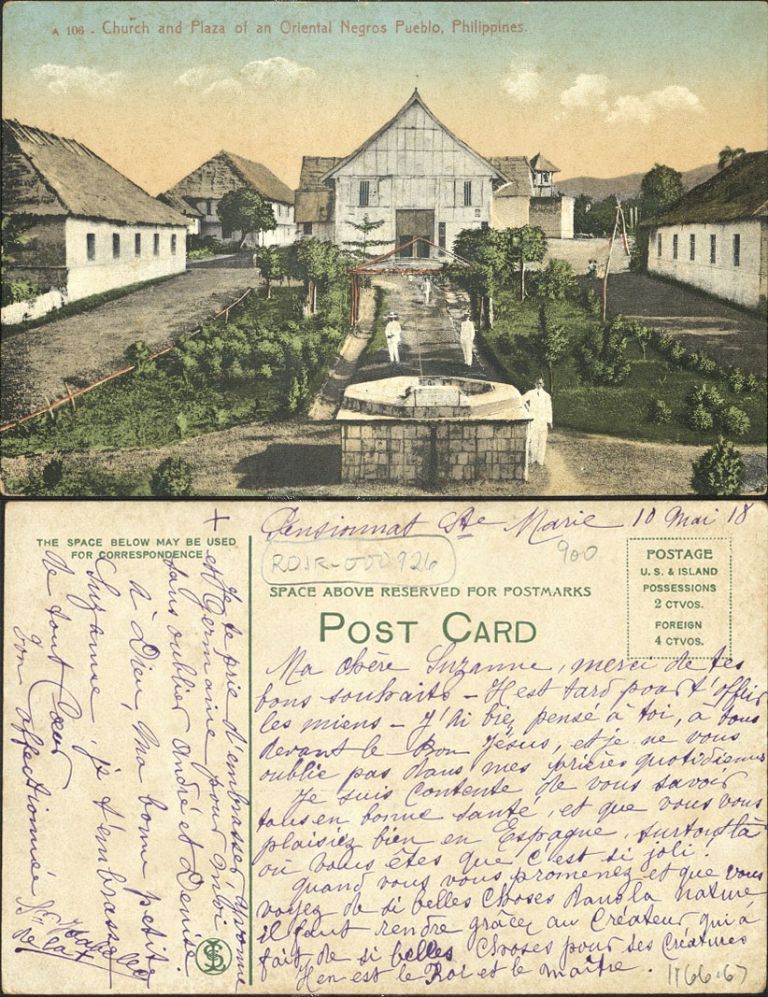 A 106 - Church and Plaza of an Oriental Negros Pueblo, Philippines.
+
Pensionnat Ste Marie 10 Mai 18
900
RDIR-000926
THE SPACE BELOW MAY BE USED
FOR CORRESPONDENCE
SPACE ABOVE RESERVED FOR POSTMARKS
POST CARD
POSTAGE
U.S. & ISLAND
POSSESSIONS
2 CTVOS.
FOREIGN
4 CTVOS.
Ma chère Suzanne, merci de tes
bons souhaits - Il est tard pour t'offrir
les miens - J'ai bien pensé à toi, à vous
devant le Bon Jésus, et je ne vous
oublie pas dans mes prières quotidiennes
Je suis contente de vous savoir
tous en bonne santé, et que vous vous
plaisiez bien en Espagne, surtout là
où vous êtes que c'est si joli.
Quand vous vous promenez et que vous
voyez de si belles choses dans la nature
il faut rendre grâce au Créateur qui a
fait de si belles choses pour ses créatures
Il en est le Roi et le maître.
1166-67
Je te prie d'embrasser Yvonne
et Germaine pour moi
sans oublier André et Denise.
à Dieu, Ma bonne petite
Suzanne, je t'embrasse
de tout Cœur
Ton affectionnée Sr
de la +